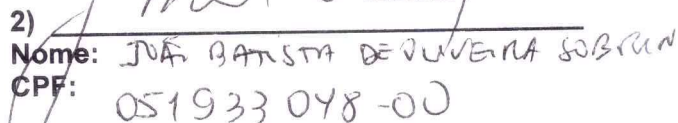 2)
Nome: JOÃO BATISTA DE OLIVEIRA SOBRIN
CPF: 051933048-00